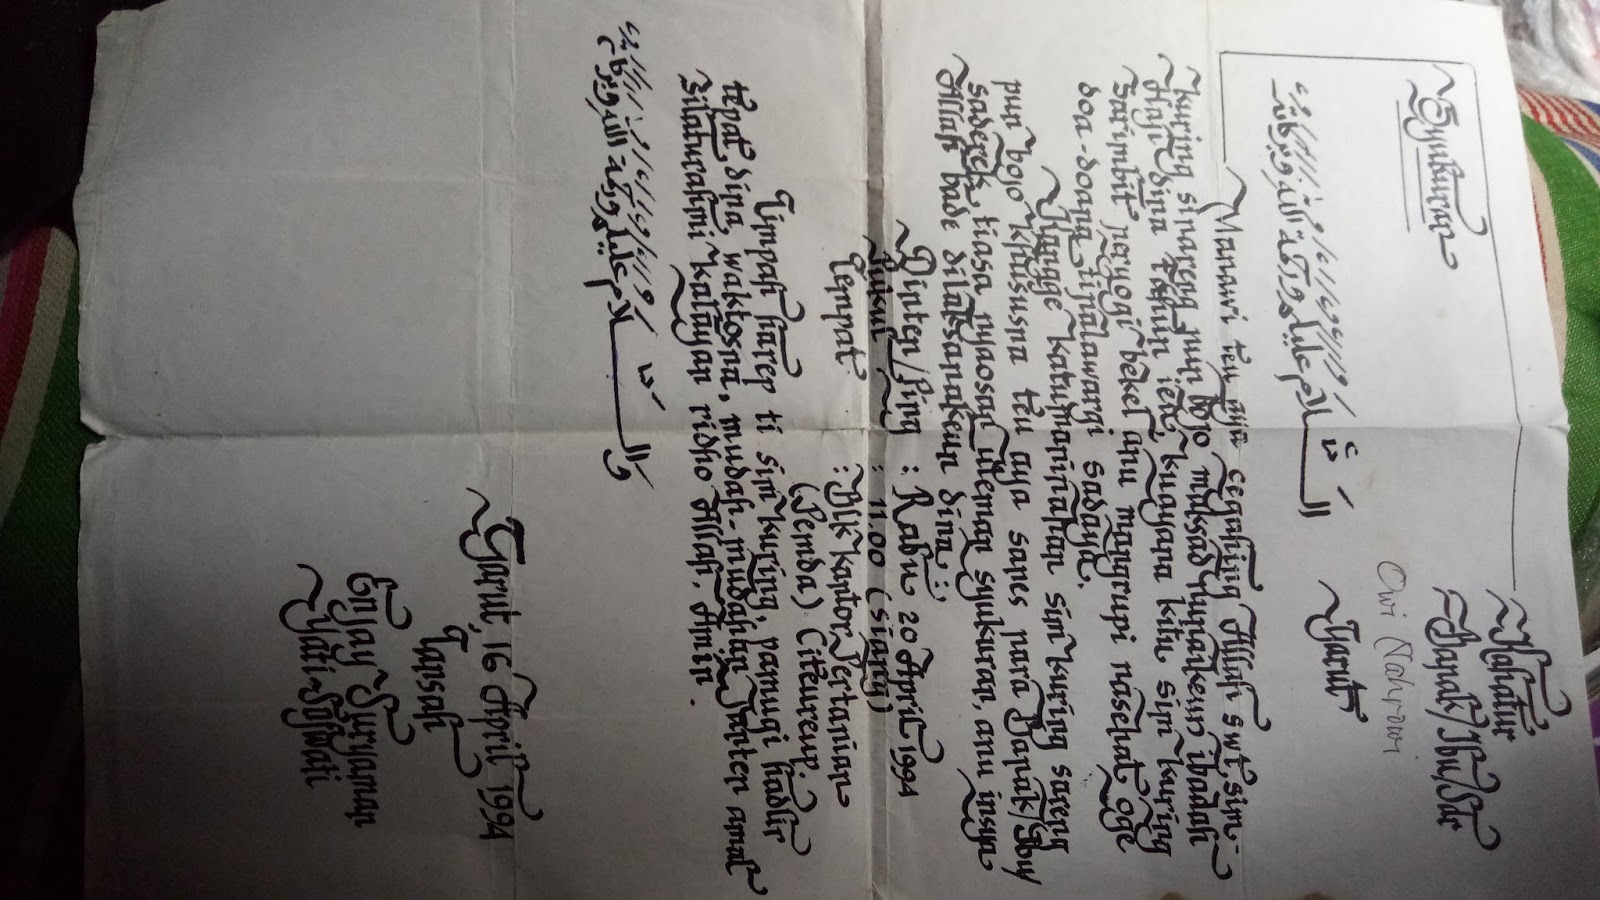 Syukuran
Kahatur
Bapak/Ibu/Sdr
Dwi Nahrowi
Garut
السَّلَامُ عَلَيْكُمْ وَرَحْمَةُ اللهِ وَبَرَكَاتُهُ
Manawi teu aya cegahing Allah swt, sim-
kuring sinareng pun bojo maksad nunaikeun ibadah
Haji dina tahun ieu, kuayana kitu sim kuring
sarimbit peryogi bekel anu mangrupi nasehat oge
doa-doana tijalawargi sadaya.
Kangge katumaninahan sim kuring sareng
pun bojo khususna teu aya sanes para Bapak/Ibu/
saderek tiasa nyaosan undeman syukuran, anu insya
Allah bade dilaksanakeun dina :
Dinten/Ping : Rabu 20 April 1994
Pukul : 11.00 (siang)
Tempat : Blk Kantor Pertanian
(Pemda) Citeureup.
Timpah harep ti sim kuring, pamugi hadir
tepat dina waktosna, mudah-mudahan janten amal
silaturahmi kalayan ridho Allah. Amin.
وَالسَّلَامُ عَلَيْكُمْ وَرَحْمَةُ اللهِ وَبَرَكَاتُهُ
Garut, 16 April 1994